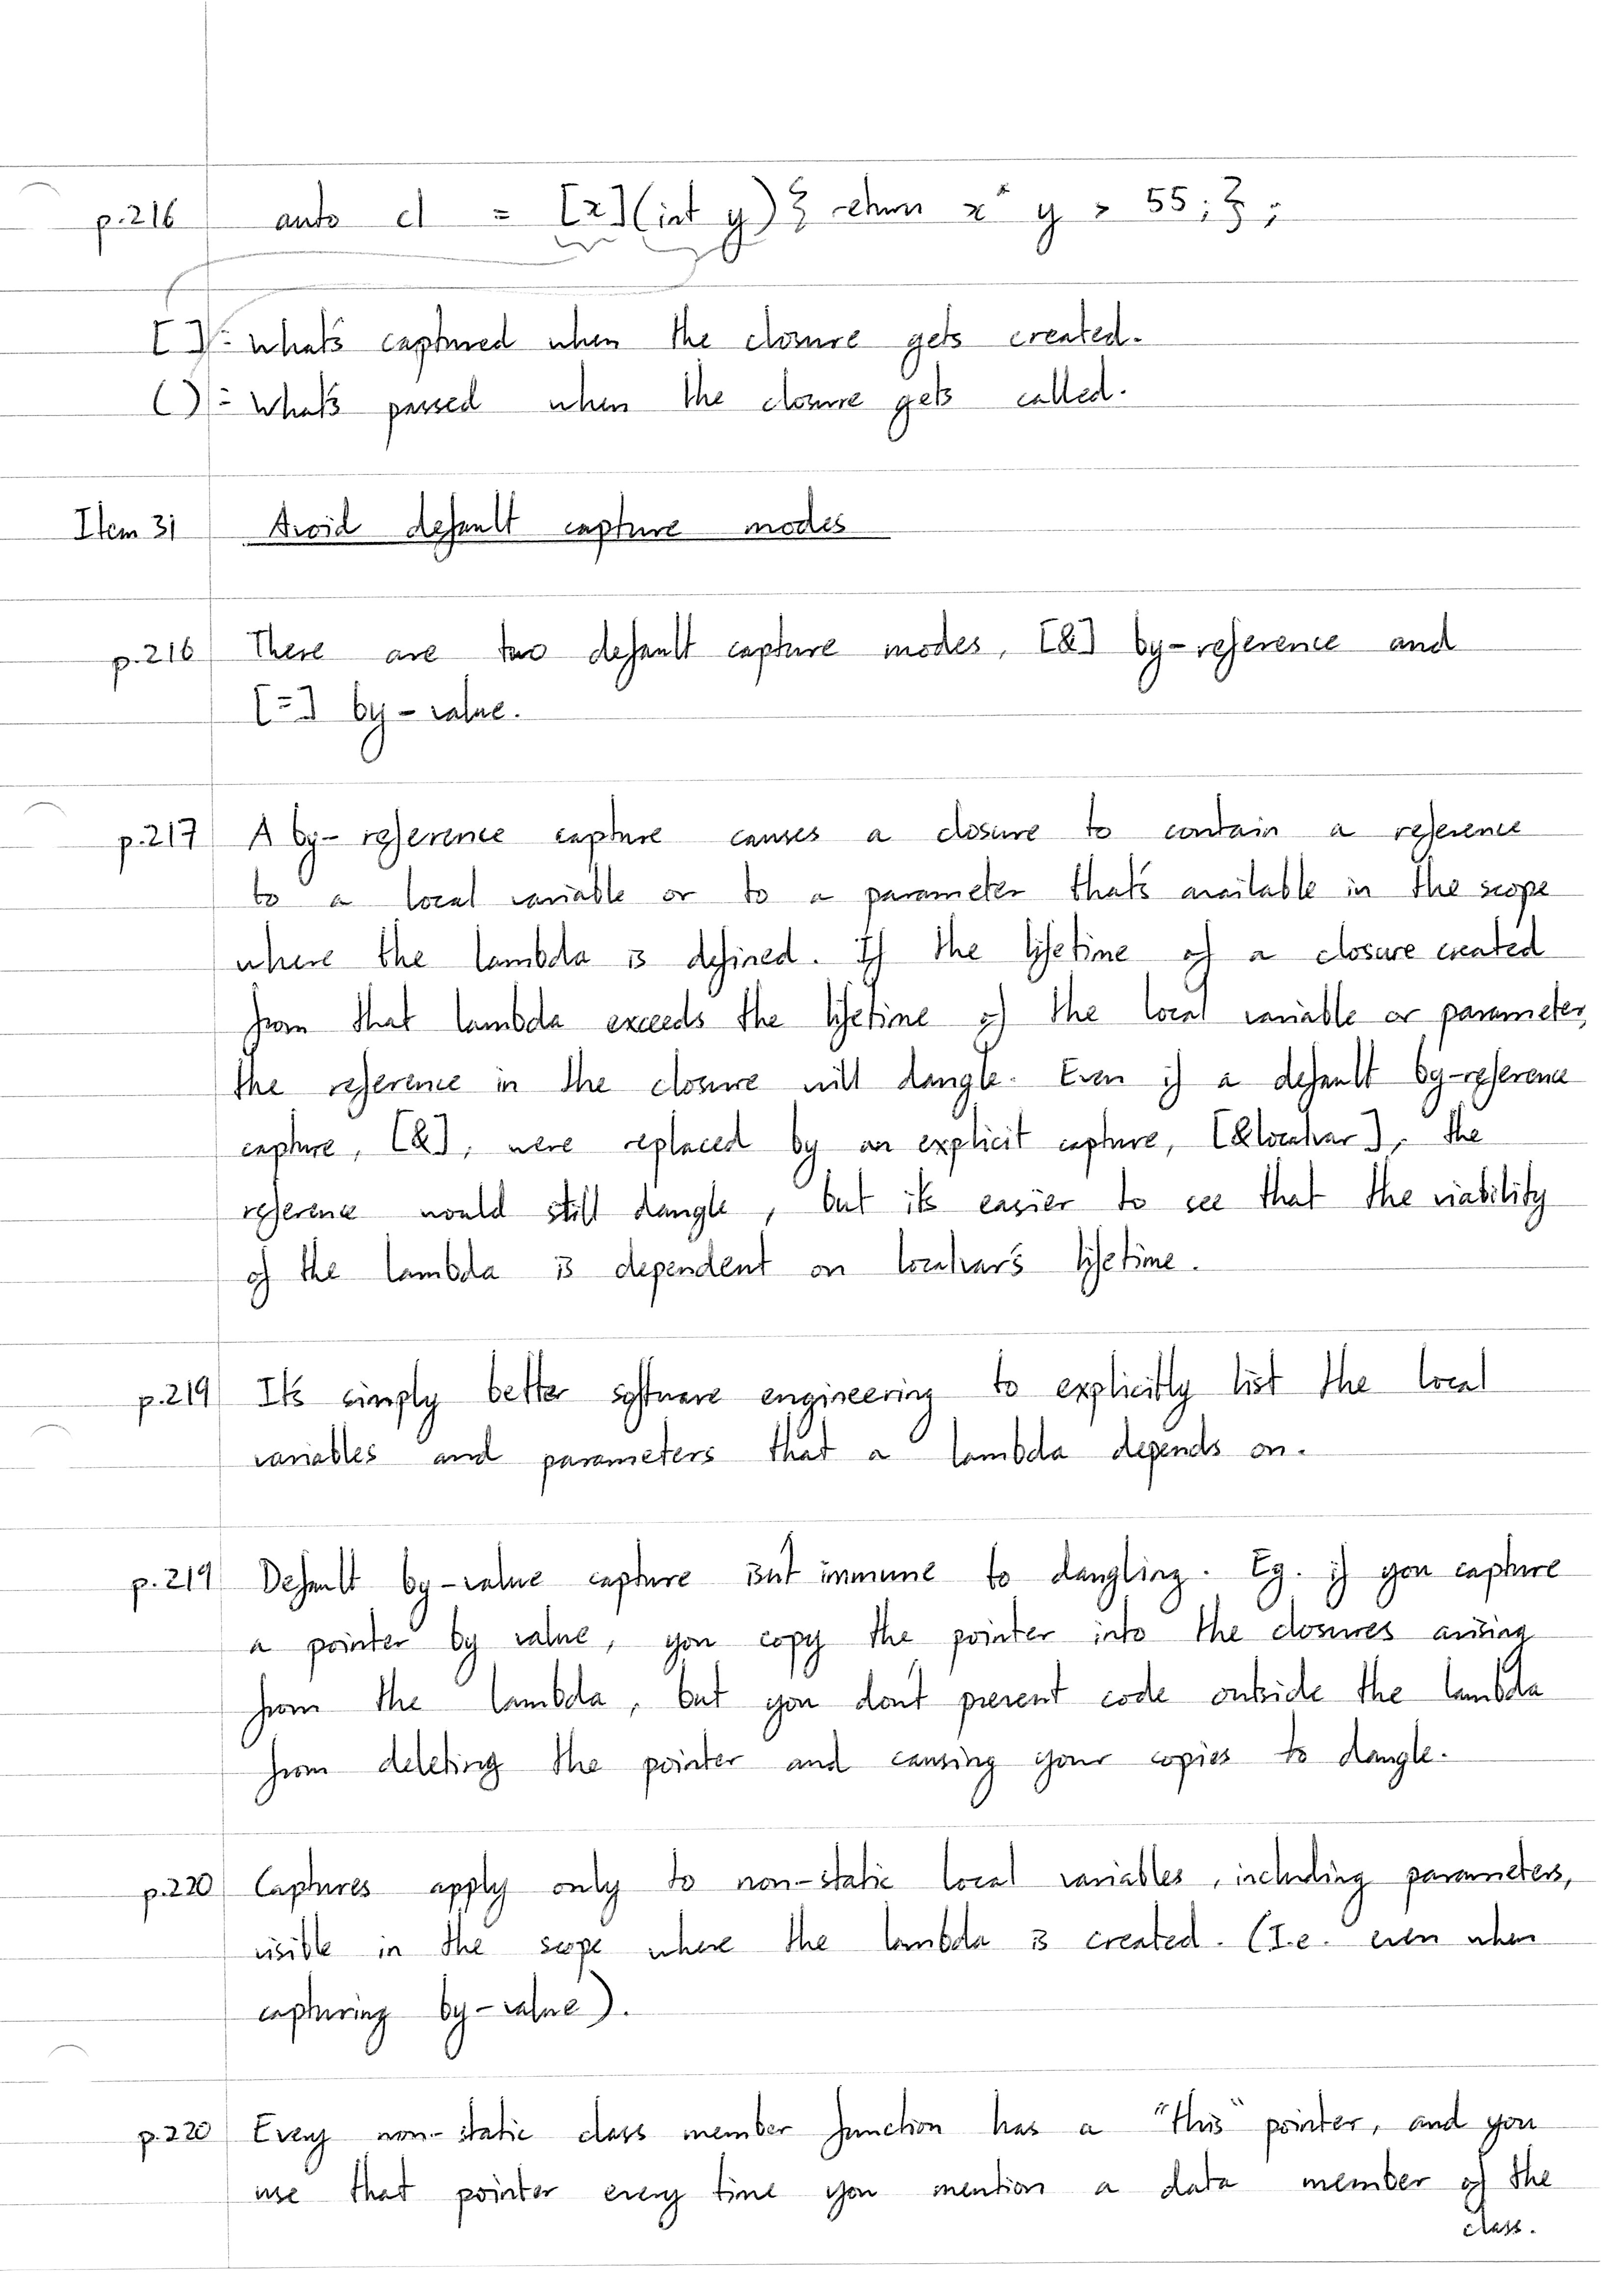 p.216 auto c1 = [x](int y){ return x * y > 55; };
[ ]: What's captured when the closure gets created.
( ): What's passed when the closure gets called.
Item 31 Avoid default capture modes
p.216 There are two default capture modes, [&] by-reference and
[=] by-value.
p.217 A by-reference capture causes a closure to contain a reference
to a local variable or to a parameter that's available in the scope
where the lambda is defined. If the lifetime of a closure created
from that lambda exceeds the lifetime of the local variable or parameter,
the reference in the closure will dangle. Even if a default by-reference
capture, [&], were replaced by an explicit capture, [&localvar], the
reference would still dangle, but it's easier to see that the viability
of the lambda is dependent on localvar's lifetime.
p.219 It's simply better software engineering to explicitly list the local
variables and parameters that a lambda depends on.
p.219 Default by-value capture isn't immune to dangling. Eg. if you capture
a pointer by value, you copy the pointer into the closures arising
from the lambda, but you don't prevent code outside the lambda
from deleting the pointer and causing your copies to dangle.
p.220 Captures apply only to non-static local variables, including parameters,
visible in the scope where the lambda is created. (I.e. even when
capturing by-value).
p.220 Every non-static class member function has a "this" pointer, and you
use that pointer every time you mention a data member of the
class.